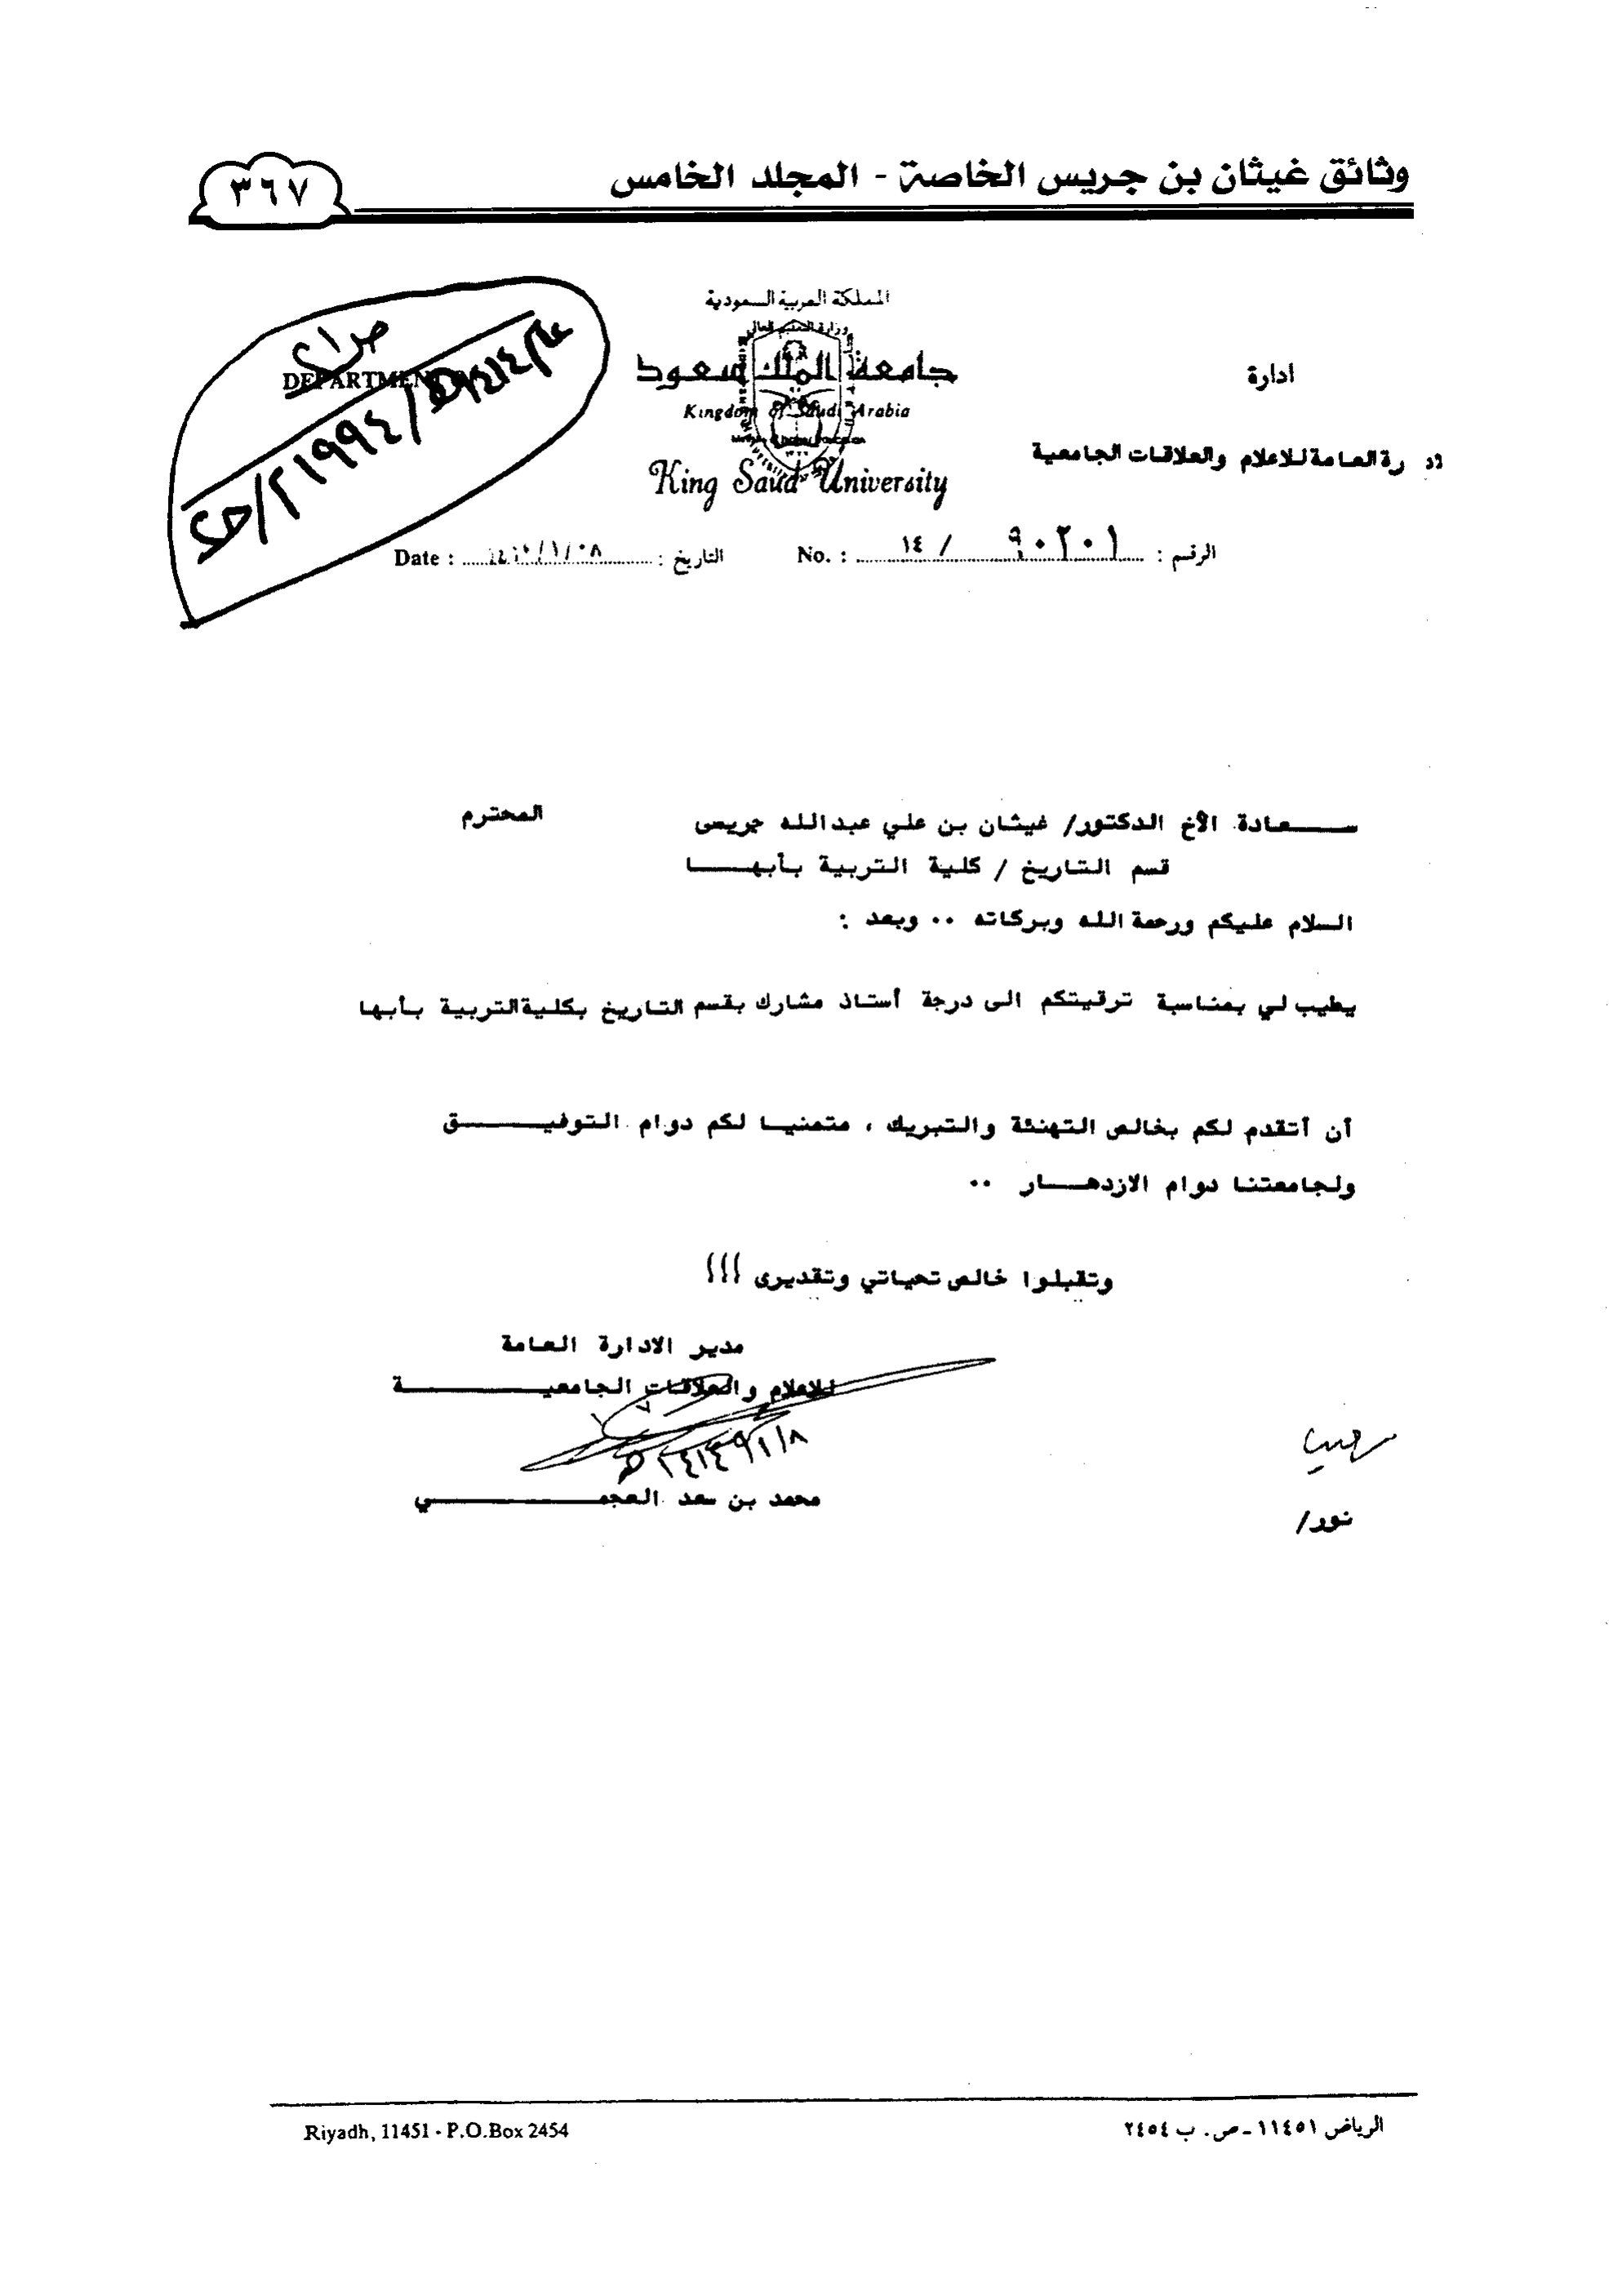 وثائق غيثان بن جريس الخاصة - المجلد الخامس
٣٦٧
المملكة العربية السعودية
وزارة التعليم العالي
جامعة الملك سعود
Kingdom of Saudi Arabia
King Saud University
ادارة
رة العامة للاعلام والعلاقات الجامعية
DEPARTMEN
الرقم : ٩٠٢٠١ / ١٤ No. :
التاريخ : ٠٨ /١/ Date :
ســـعادة الأخ الدكتور/ غيثان بن علي عبدالله جريس المحترم
قسم التاريخ / كلية التربية بأبهـــا
السلام عليكم ورحمة الله وبركاته .. وبعد :
يطيب لي بمناسبة ترقيتكم الى درجة أستاذ مشارك بقسم التاريخ بكلية التربية بأبها
أن أتقدم لكم بخالص التهنئة والتبريك ، متمنيـا لكم دوام التوفيـــــق
ولجامعتنا دوام الازدهـــار ..
وتقبلوا خالص تحياتي وتقديرى !!!
مدير الادارة العامة
للاعلام والعلاقات الجامعيــــــــة
محمد بن سعد العجمـــــــــي
نور/
الرياض ١١٤٥١ - ص. ب ٢٤٥٤
Riyadh, 11451 - P.O.Box 2454